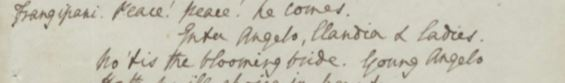 Frangipani. Peace! Peace! he comes.
Enter Angelo, Claudia & Ladies.
No 'tis the blooming bride. Young Angelo